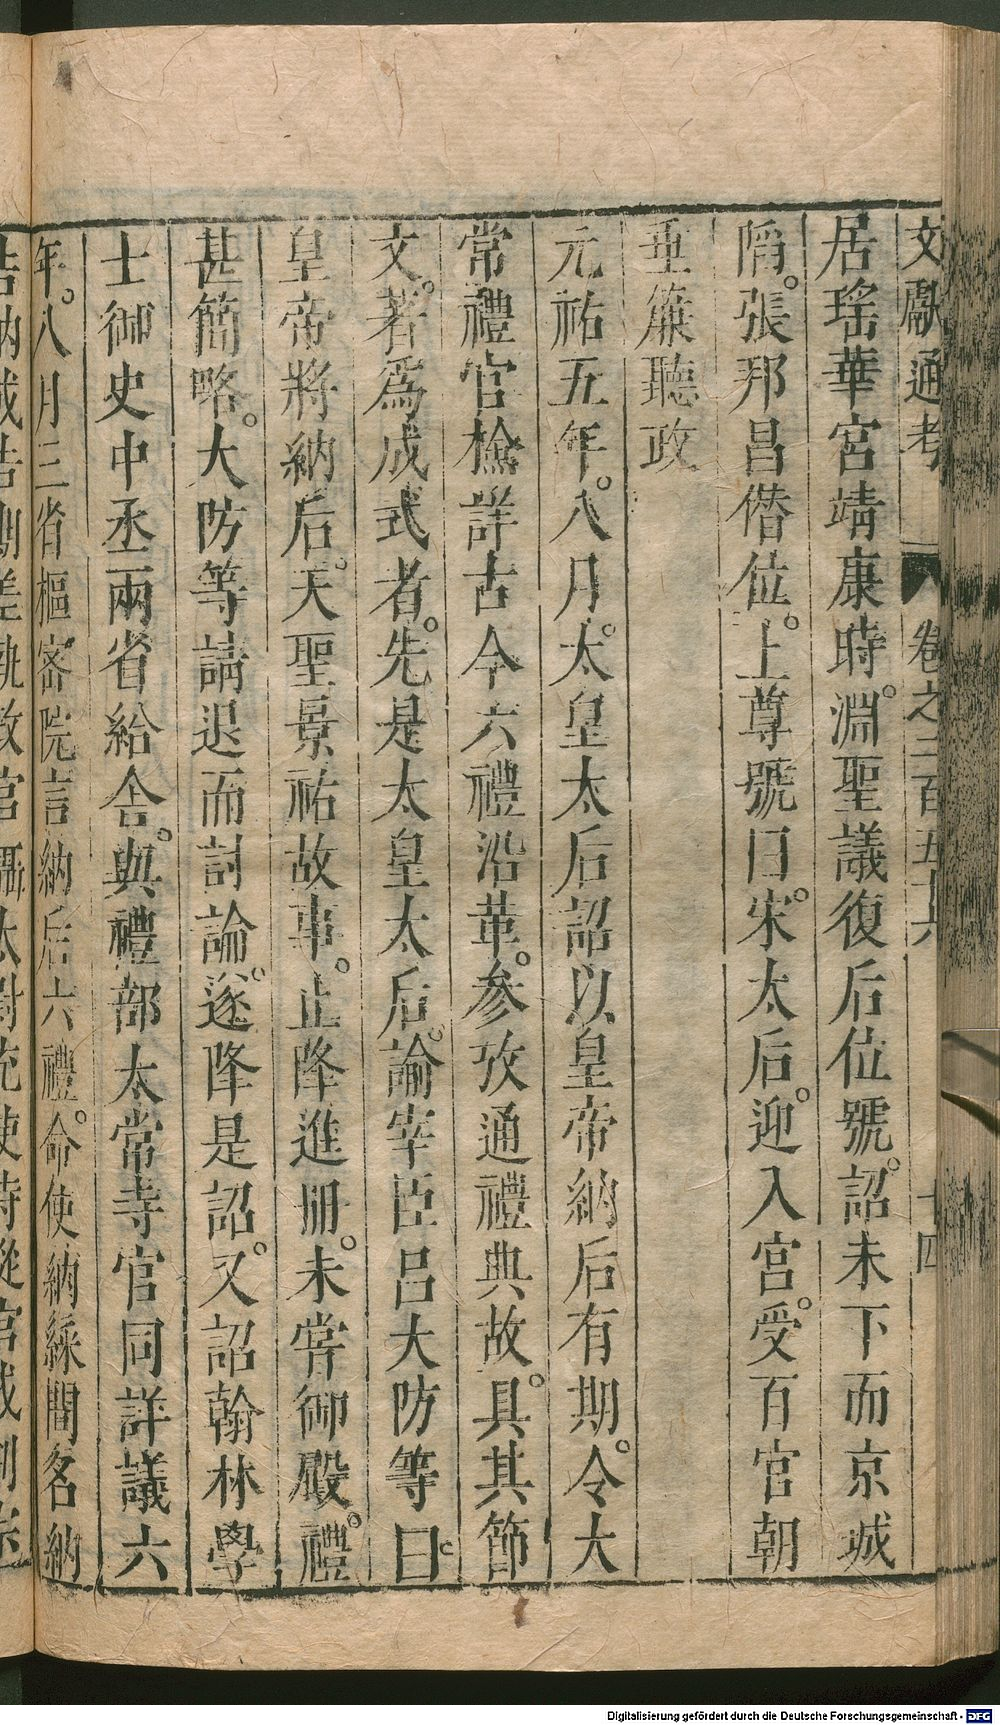 文獻通考 卷之二百五十六 十四
居瑤華宮靖康時。淵聖議復后位號。詔未下而京城
陷。張邦昌僭位。上尊號曰宋。太后。迎入宮。受百官朝
垂簾聽政
元祐五年。八月。太皇太后詔以皇帝納后有期。令太
常禮官檢詳古今六禮沿革。參攷通禮典故。具其節
文。著爲成式者。先是太皇太后。諭宰臣呂大防等曰。
皇帝將納后。天聖景祐故事。止降進冊。未嘗御殿。禮
甚簡略。大防等請退而討論。遂降是詔。又詔翰林學
士御史中丞兩省給舍。與禮部太常寺官同詳議六
年。八月三省樞密院言納后六禮。命使納綵問名納